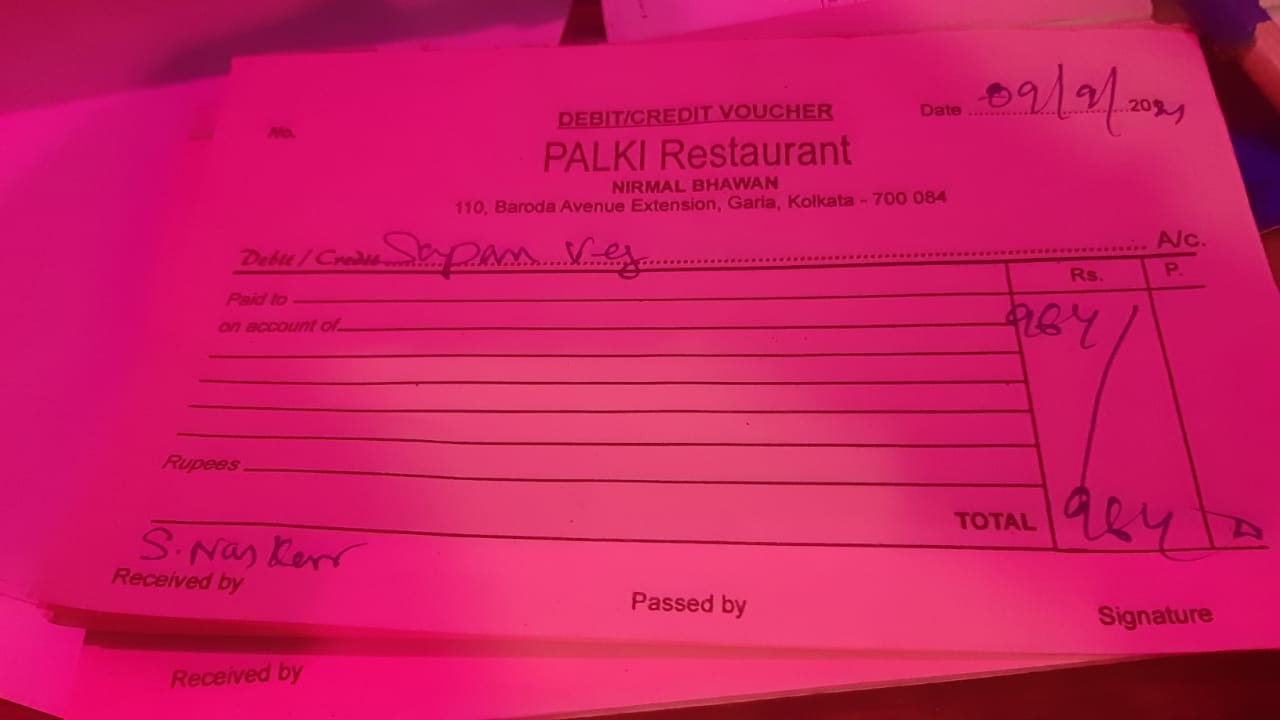 No.
DEBIT/CREDIT VOUCHER
Date 09/9/2021
PALKI Restaurant
NIRMAL BHAWAN
110, Baroda Avenue Extension, Garia, Kolkata - 700 084
Debit / Credit Sapan Veg A/c.
Rs. P.
Paid to
on account of 964/
Rupees
TOTAL 964
S. Naskar
Received by
Passed by
Signature
Received by